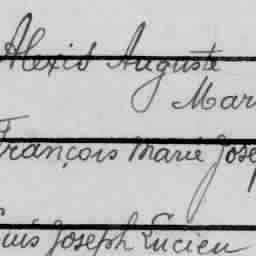 Alexis Auguste
Mar
François Marie Jose
uis Joseph Lucien